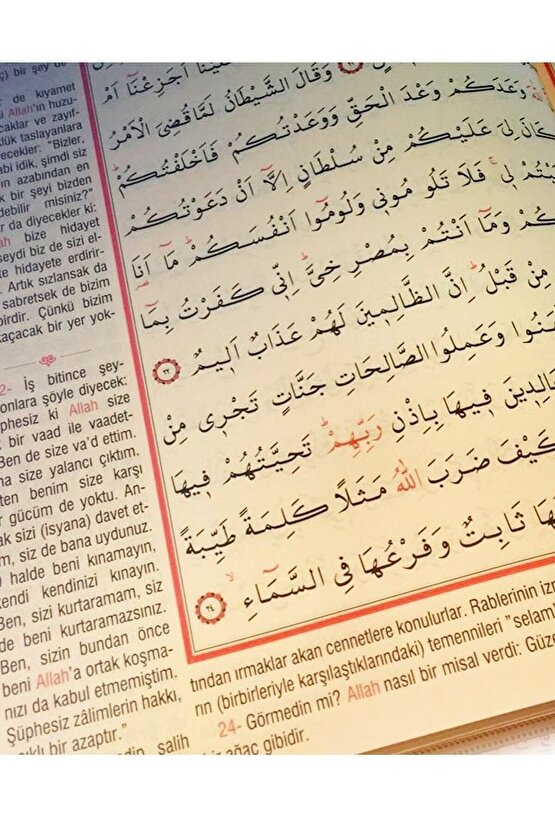 ç) bir şey de
de kıyamet
Allah'ın huzu-
caklar ve zayıf-
klük taslayanlara
ecekler: "Bizler,
abi idik, şimdi siz
ın azabından en
k bir şeyi bizden
debilir misiniz?"
ar da diyecekler ki:
ah bize hidayet
seydi biz de sizi el-
te hidayete erdirir-
. Artık sızlansak da
sabretsek de bizim
birdir. Çünkü bizim
kaçacak bir yer yok-
2- İş bitince şey-
onlara şöyle diyecek:
phesiz ki Allah size
k bir vaad ile vaadet-
Ben de size va'd ettim.
na size yalancı çıktım.
ten benim size karşı
r gücüm de yoktu. An-
ak sizi (isyana) davet et-
m, siz de bana uydunuz.
) halde beni kınamayın,
kendi kendinizi kınayın.
Ben, sizi kurtaramam, siz
de beni kurtaramazsınız.
Ben, sizin bundan önce
beni Allah'a ortak koşma-
nızı da kabul etmemiştim.
Şüphesiz zâlimlerin hakkı,
ıklı bir azaptır."
salih
اَجَزِعْنَٓا اَمْ
وَقَالَ الشَّيْطَانُ لَمَّا قُضِيَ الْاَمْرُ
وَعَدَكُمْ وَعْدَ الْحَقِّ وَوَعَدْتُكُمْ فَاَخْلَفْتُكُمْ
كَانَ لِيَ عَلَيْكُمْ مِنْ سُلْطَانٍ اِلَّٓا اَنْ دَعَوْتُكُمْ
بْتُمْ ل۪ي فَلَا تَلُومُون۪ي وَلُومُٓوا اَنْفُسَكُمْ مَٓا اَنَا۬
كُمْ وَمَٓا اَنْتُمْ بِمُصْرِخِيَّ اِنّ۪ي كَفَرْتُ بِمَٓا
مِنْ قَبْلُ اِنَّ الظَّالِم۪ينَ لَهُمْ عَذَابٌ اَل۪يمٌ ٢٢
مَنُوا وَعَمِلُوا الصَّالِحَاتِ جَنَّاتٍ تَجْر۪ي مِنْ
الِد۪ينَ ف۪يهَا بِاِذْنِ رَبِّهِمْ تَحِيَّتُهُمْ ف۪يهَا
كَيْفَ ضَرَبَ اللّٰهُ مَثَلًا كَلِمَةً طَيِّبَةً
هَا ثَابِتٌ وَفَرْعُهَا فِي السَّمَٓاءِ ٢٤
tından ırmaklar akan cennetlere konulurlar. Rablerinin iz
rın (birbirleriyle karşılaştıklarındaki) temennileri "selam
24- Görmedin mi? Allah nasıl bir misal verdi: Güze
ir ağaç gibidir.